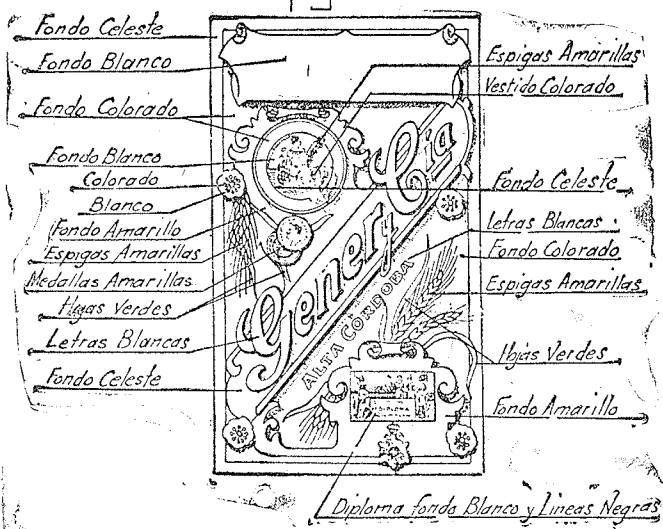 Fondo Celeste
Fondo Blanco
Fondo Colorado
Fondo Blanco
Colorado
Blanco
Fondo Amarillo
Espigas Amarillas
Medallas Amarillas
Hojas Verdes
Letras Blancas
Fondo Celeste
Genery Cía
ALTA CÓRDOBA
Espigas Amarillas
Vestido Colorado
Fondo Celeste
Letras Blancas
Fondo Colorado
Espigas Amarillas
Hojas Verdes
Fondo Amarillo
Diploma fondo Blanco y Lineas Negras